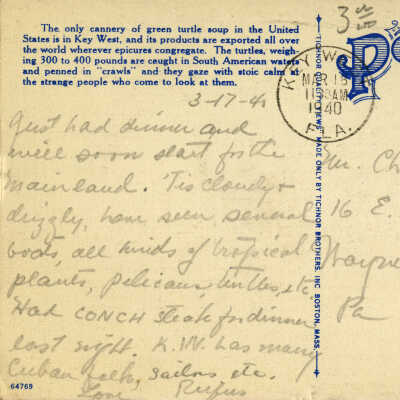 The only cannery of green turtle soup in the United
States is in Key West, and its products are exported all over
the world wherever epicures congregate. The turtles, weigh-
ing 300 to 400 pounds are caught in South American waters
and penned in "crawls" and they gaze with stoic calm at
the strange people who come to look at them.
3-17-40
Just had dinner and
will soon start for the
mainland. 'Tis cloudy &
drizzly, have seen several
boats, all kinds of tropical
plants, pelicans, turtles, etc
Had CONCH steak for dinner
last night. K.W. has many
Cuban folk, sailors etc.
Love Rufus
64769
TICHNOR QUALITY VIEWS, MADE ONLY BY TICHNOR BROTHERS, INC. BOSTON, MASS.
KEY WEST
MAR 18
11 AM
1940
FLA.
Mr. Ch
16 E.
Wayne
Pa